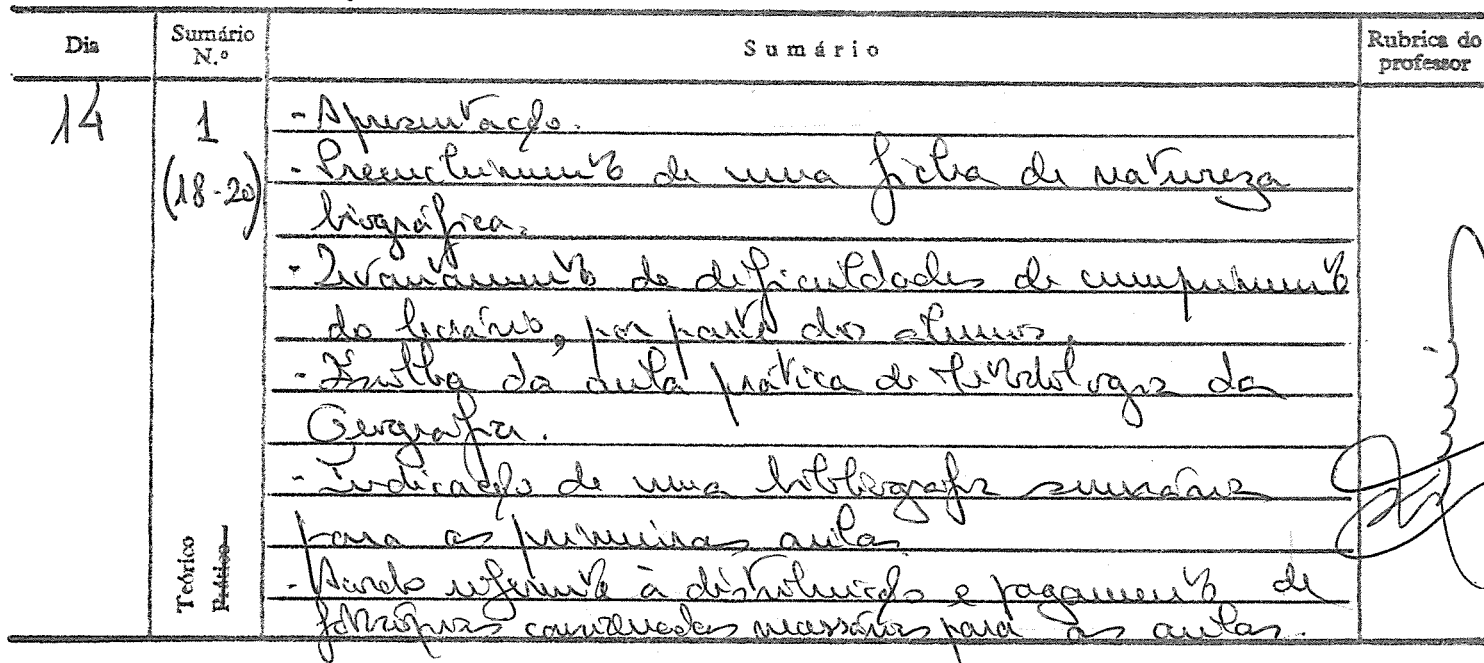 Dia Sumário N.º Sumário Rubrica do professor
14 1 - Apresentação.
(18-20) - Preenchimento de uma ficha de natureza
biográfica.
- Levantamento de dificuldades de cumprimento
do horário, por parte dos alunos.
- Escolha da aula prática de Metodologia da
Geografia.
- Indicação de uma bibliografia sumária
para as primeiras aulas
- Acordo referente à distribuição e pagamento de
fotocópias consideradas necessárias para as aulas.
Teórico
Prático